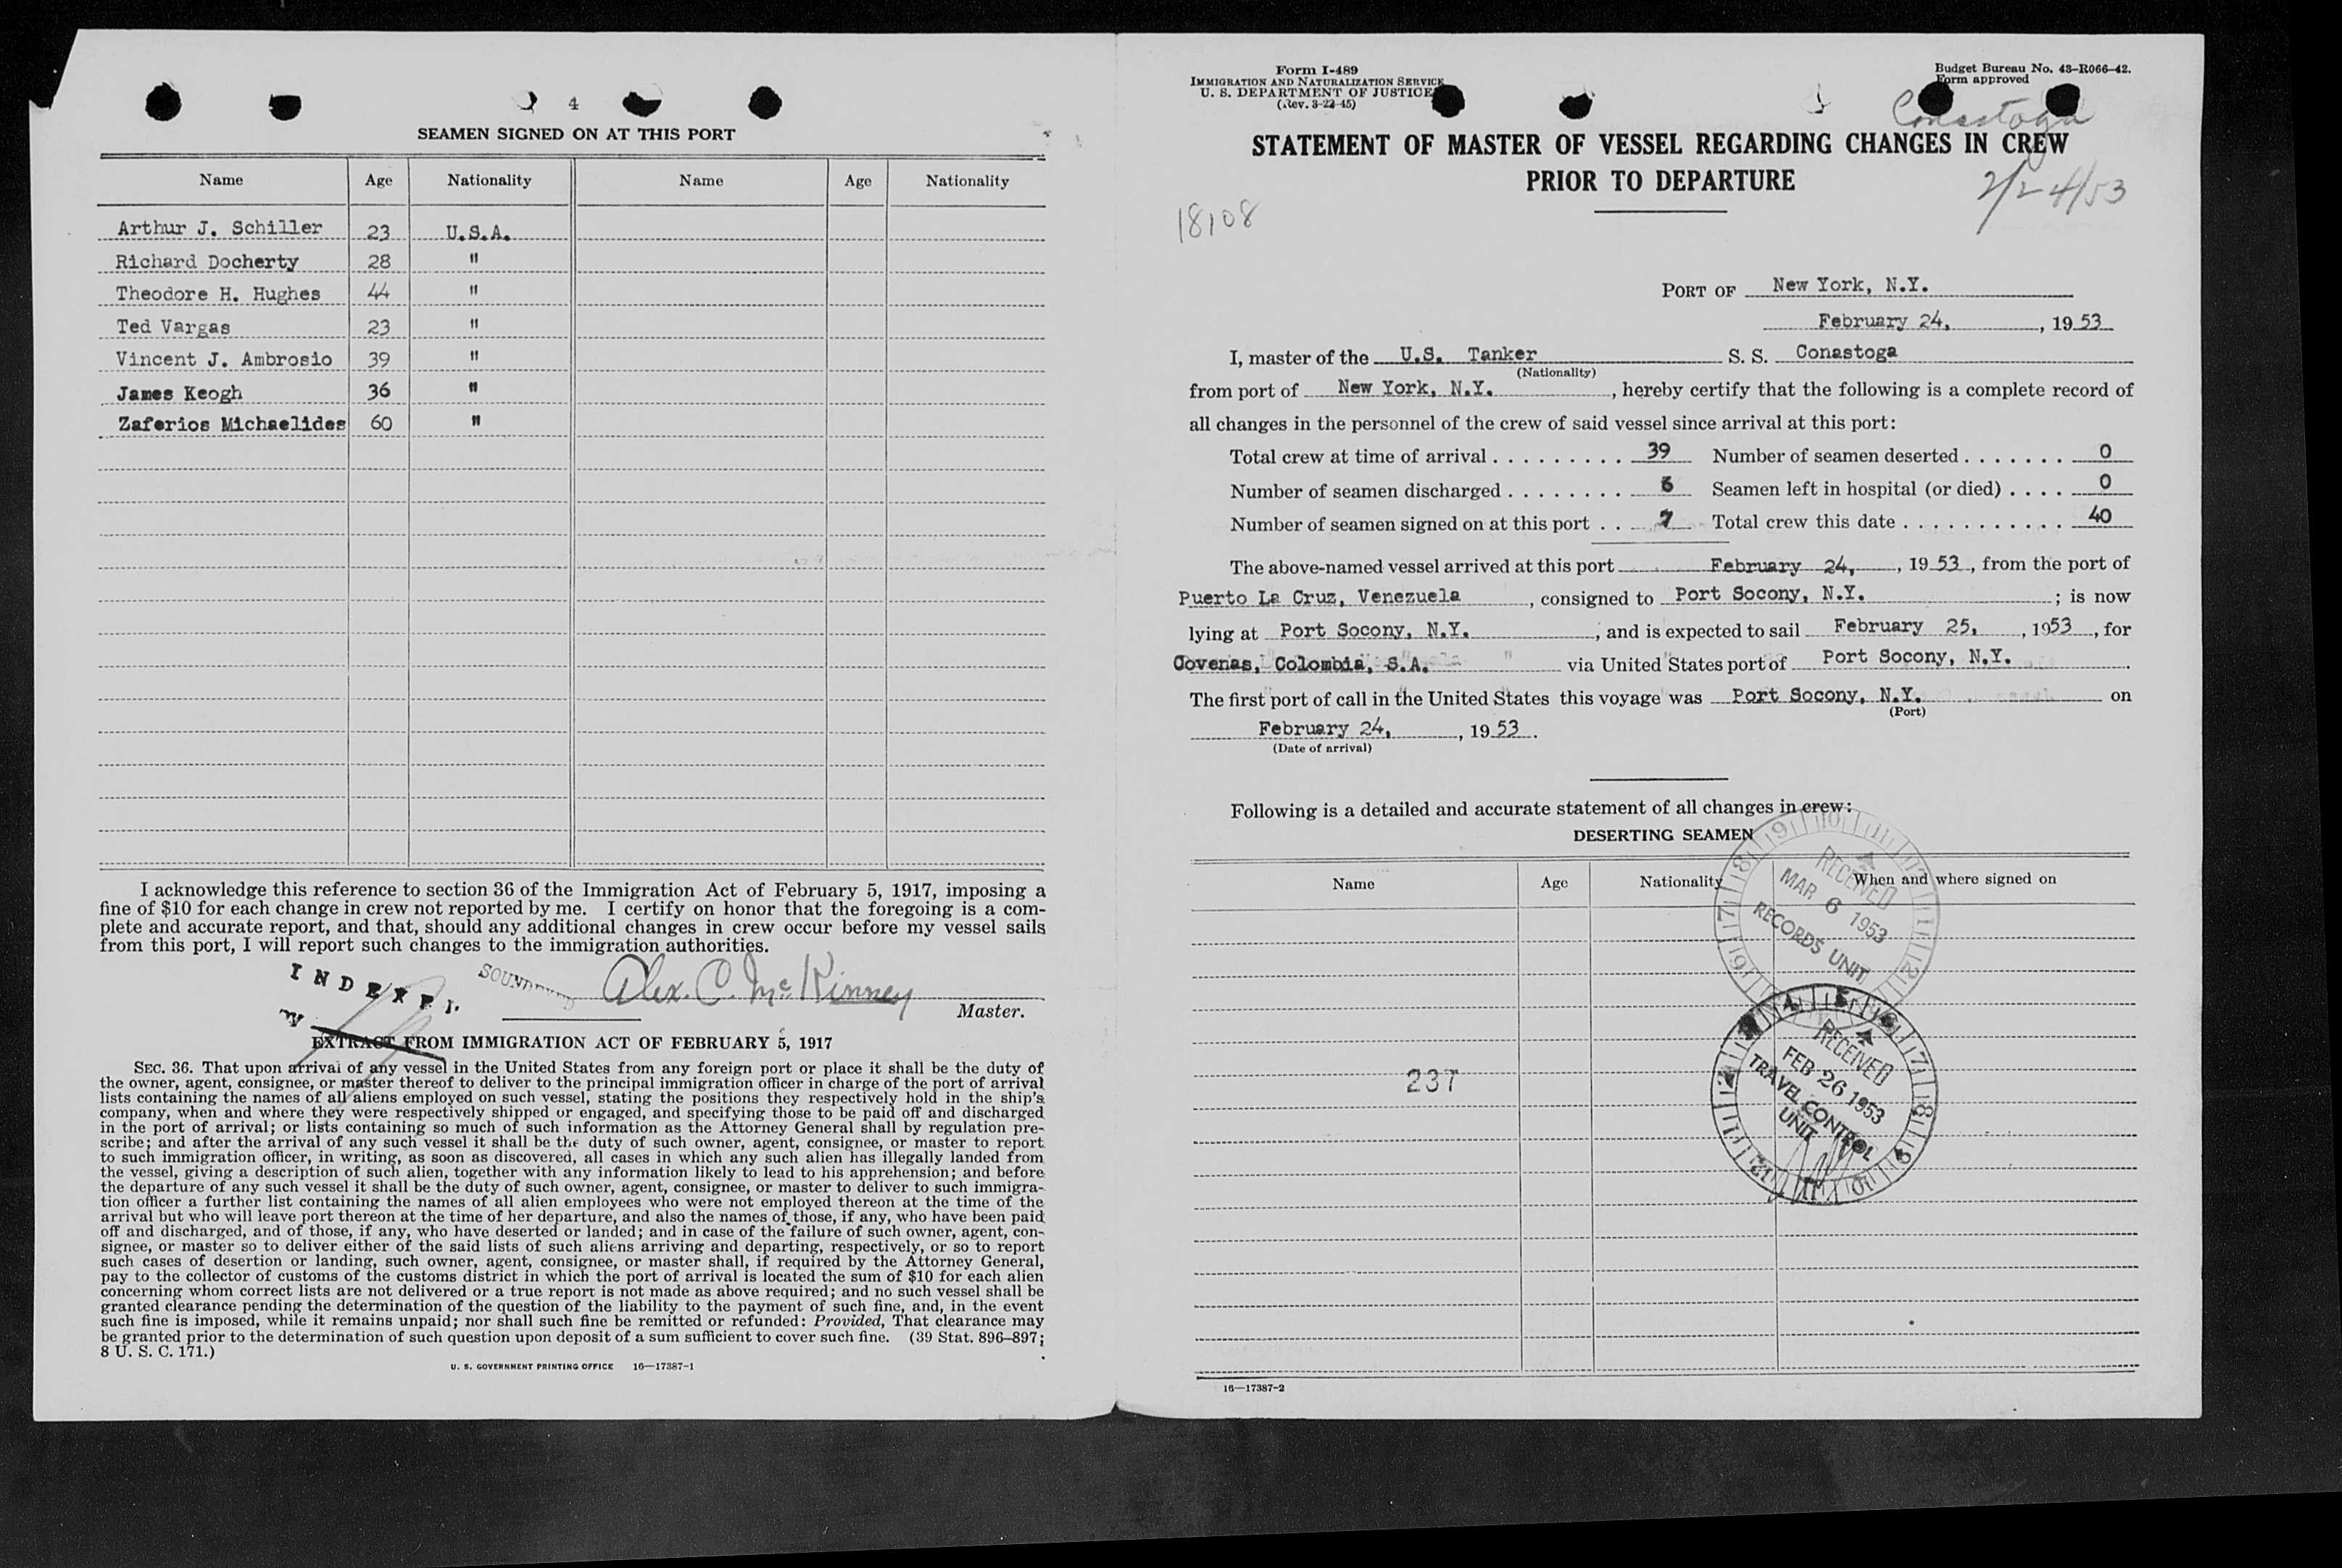 4
SEAMEN SIGNED ON AT THIS PORT
Name Age Nationality Name Age Nationality
Arthur J. Schiller 23 U.S.A.
Richard Docherty 28 "
Theodore H. Hughes 44 "
Ted Vargas 23 "
Vincent J. Ambrosio 39 "
James Keogh 36 "
Zaferios Michaelides 60 "
I acknowledge this reference to section 36 of the Immigration Act of February 5, 1917, imposing a
fine of $10 for each change in crew not reported by me. I certify on honor that the foregoing is a com-
plete and accurate report, and that, should any additional changes in crew occur before my vessel sails
from this port, I will report such changes to the immigration authorities.
Alex. C. McKinney
Master.
EXTRACT FROM IMMIGRATION ACT OF FEBRUARY 5, 1917
SEC. 36. That upon arrival of any vessel in the United States from any foreign port or place it shall be the duty of
the owner, agent, consignee, or master thereof to deliver to the principal immigration officer in charge of the port of arrival
lists containing the names of all aliens employed on such vessel, stating the positions they respectively hold in the ship's
company, when and where they were respectively shipped or engaged, and specifying those to be paid off and discharged
in the port of arrival; or lists containing so much of such information as the Attorney General shall by regulation pre-
scribe; and after the arrival of any such vessel it shall be the duty of such owner, agent, consignee, or master to report
to such immigration officer, in writing, as soon as discovered, all cases in which any such alien has illegally landed from
the vessel, giving a description of such alien, together with any information likely to lead to his apprehension; and before
the departure of any such vessel it shall be the duty of such owner, agent, consignee, or master to deliver to such immigra-
tion officer a further list containing the names of all alien employees who were not employed thereon at the time of the
arrival but who will leave port thereon at the time of her departure, and also the names of those, if any, who have been paid
off and discharged, and of those, if any, who have deserted or landed; and in case of the failure of such owner, agent, con-
signee, or master so to deliver either of the said lists of such aliens arriving and departing, respectively, or so to report
such cases of desertion or landing, such owner, agent, consignee, or master shall, if required by the Attorney General,
pay to the collector of customs of the customs district in which the port of arrival is located the sum of $10 for each alien
concerning whom correct lists are not delivered or a true report is not made as above required; and no such vessel shall be
granted clearance pending the determination of the question of the liability to the payment of such fine, and, in the event
such fine is imposed, while it remains unpaid; nor shall such fine be remitted or refunded: Provided, That clearance may
be granted prior to the determination of such question upon deposit of a sum sufficient to cover such fine. (39 Stat. 896-897;
8 U. S. C. 171.)
U. S. GOVERNMENT PRINTING OFFICE 16—17387-1
Form I-489
IMMIGRATION AND NATURALIZATION SERVICE
U. S. DEPARTMENT OF JUSTICE
(Rev. 3-22-45)
Budget Bureau No. 43-R066-42.
Form approved
Conastoga
STATEMENT OF MASTER OF VESSEL REGARDING CHANGES IN CREW
PRIOR TO DEPARTURE
2/24/53
18108
PORT OF New York, N.Y.
February 24, , 1953
I, master of the U.S. Tanker S. S. Conastoga
(Nationality)
from port of New York, N.Y. , hereby certify that the following is a complete record of
all changes in the personnel of the crew of said vessel since arrival at this port:
Total crew at time of arrival . . . . . . . . . 39 Number of seamen deserted . . . . . . . 0
Number of seamen discharged . . . . . . . . 6 Seamen left in hospital (or died) . . . . 0
Number of seamen signed on at this port . . 7 Total crew this date . . . . . . . . . . . 40
The above-named vessel arrived at this port February 24, , 1953, from the port of
Puerto La Cruz, Venezuela , consigned to Port Socony, N.Y. ; is now
lying at Port Socony, N.Y. , and is expected to sail February 25, , 1953, for
Covenas, Colombia, S.A. via United States port of Port Socony, N.Y.
The first port of call in the United States this voyage was Port Socony, N.Y. on
(Port)
February 24, , 1953.
(Date of arrival)
Following is a detailed and accurate statement of all changes in crew:
DESERTING SEAMEN
Name Age Nationality When and where signed on
RECEIVED
MAR 6 1953
RECORDS UNIT
RECEIVED
FEB 26 1953
TRAVEL CONTROL
UNIT
237
16—17387-2